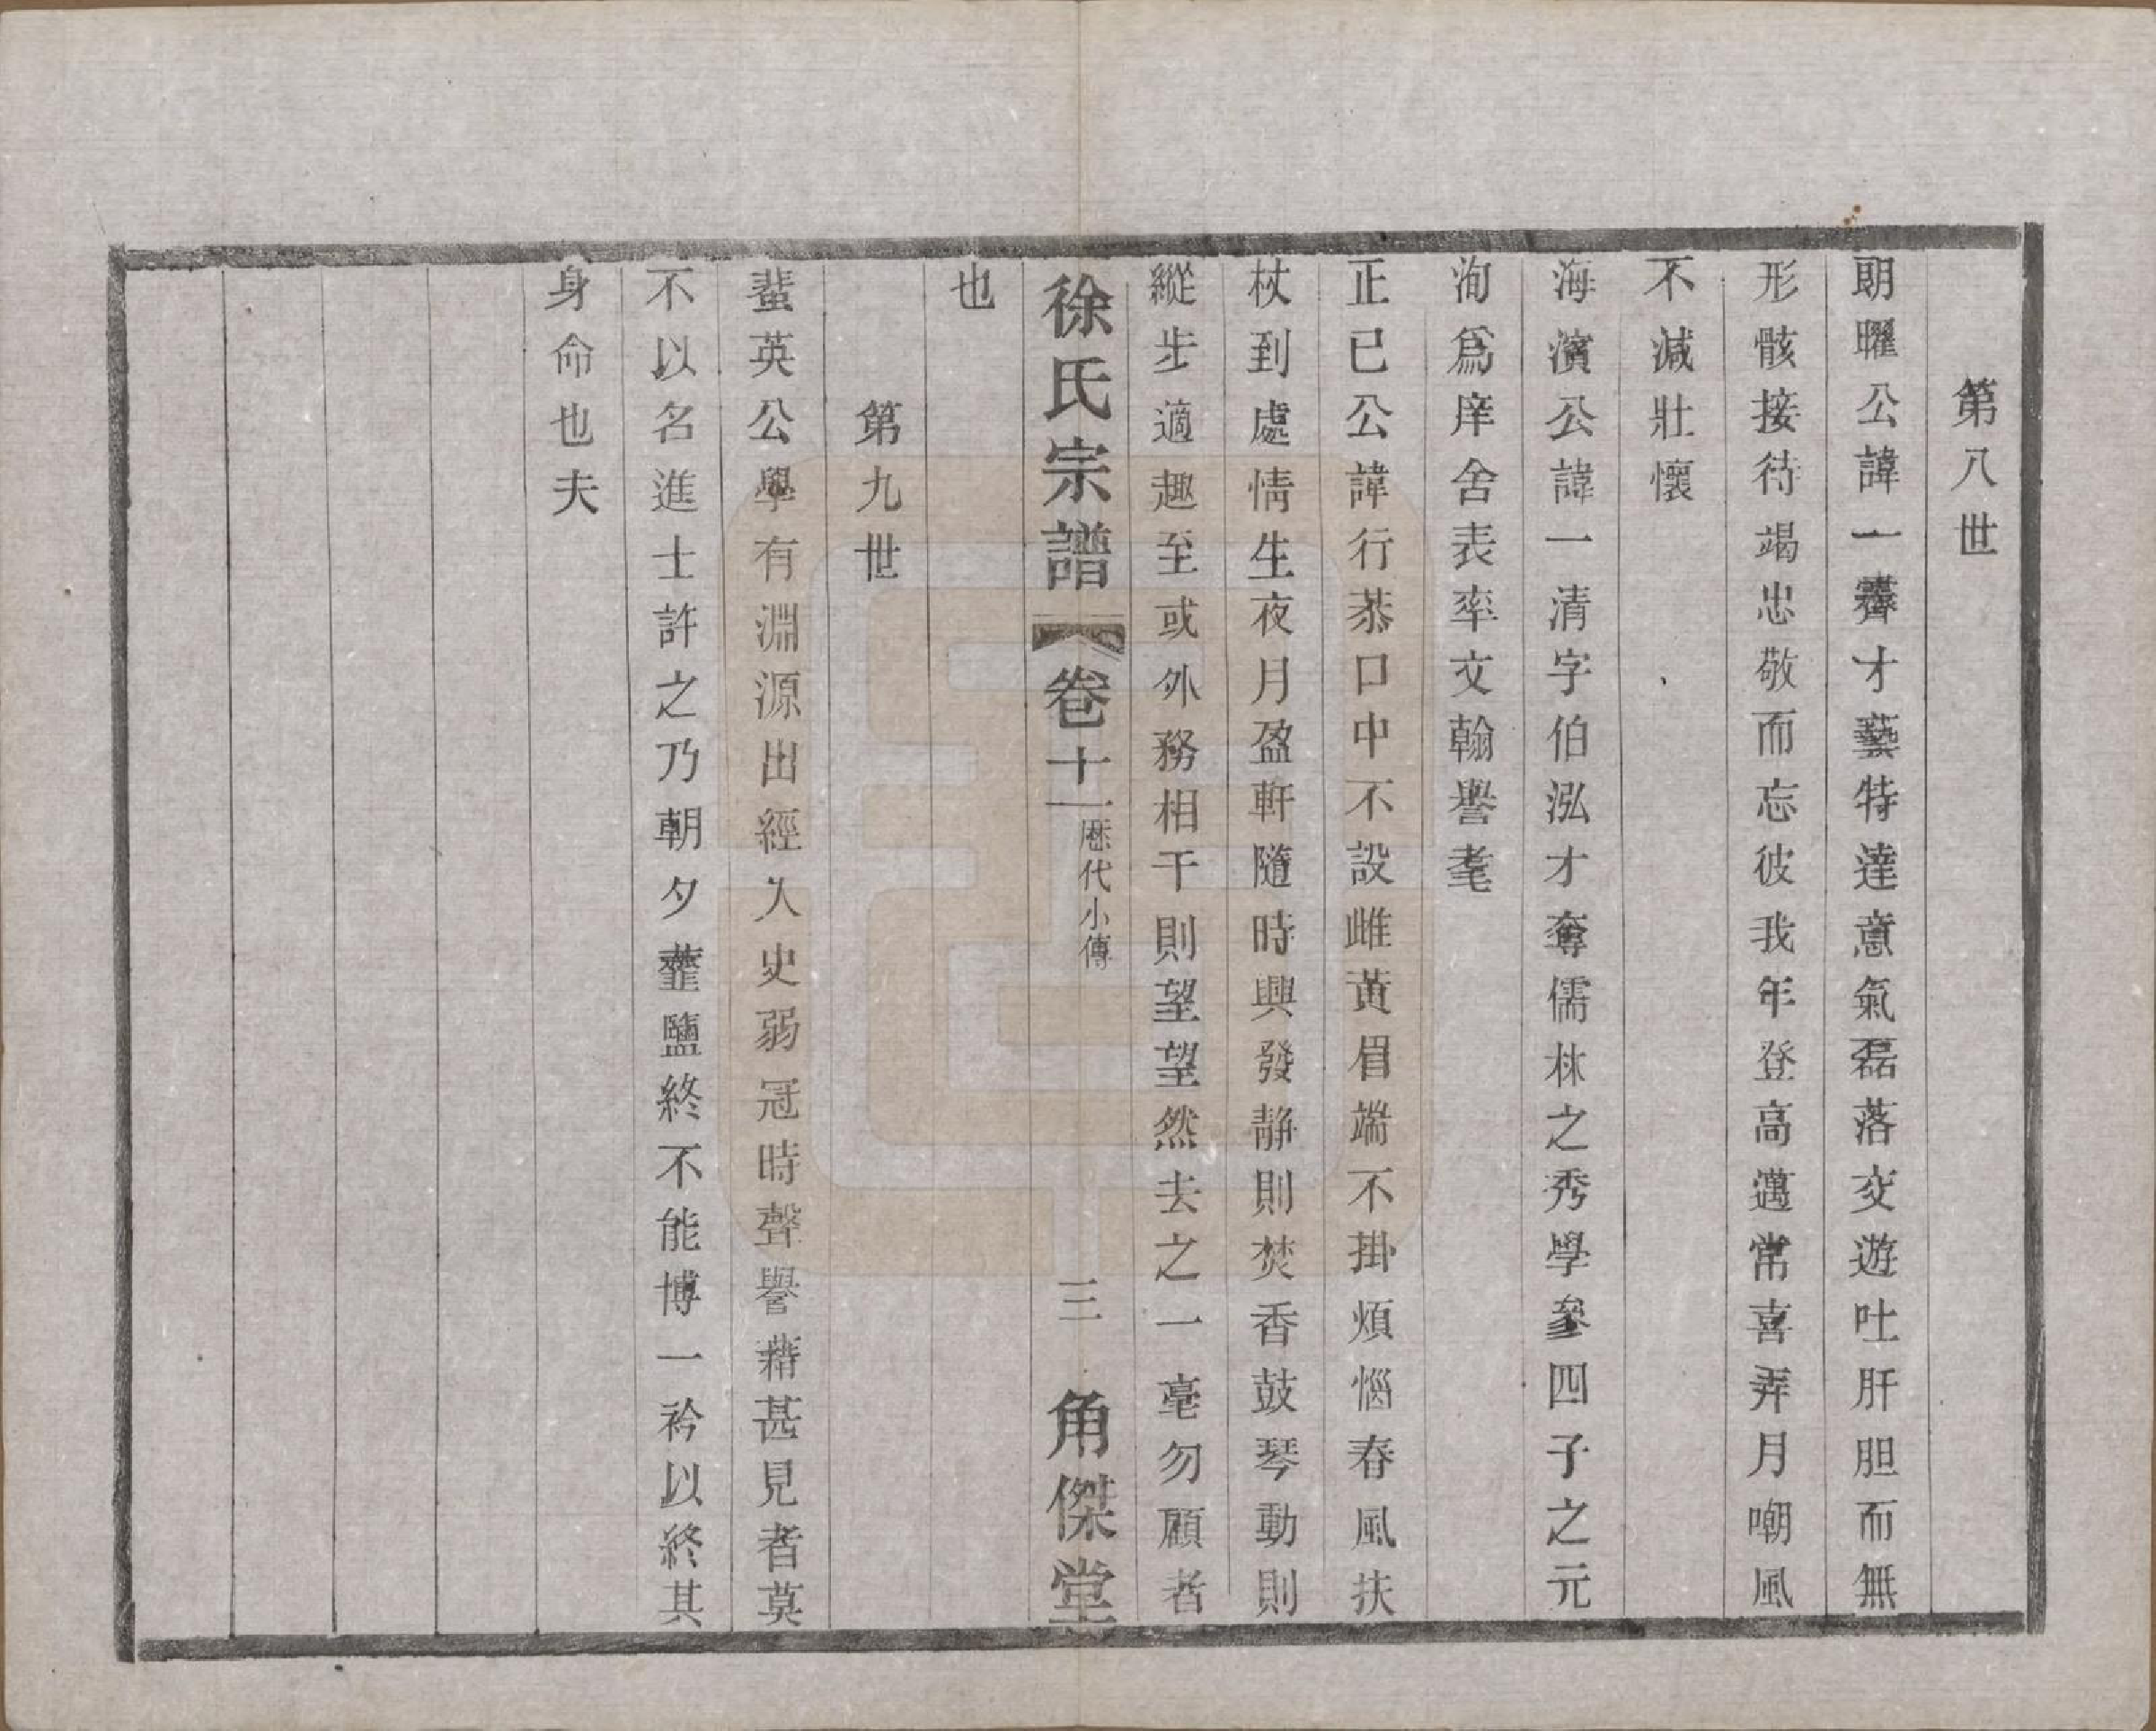 第八世
朗曜公諱一霽才藝特達意氣磊落交遊吐肝胆而無
形骸接待竭忠敬而忘彼我年登高邁常喜弄月嘲風
不減壯懷
海濱公諱一清字伯泓才奪儒林之秀學參四子之元
洵爲庠舍表率文翰譽耄
正已公諱行恭口中不設雌黃眉端不掛煩惱春風扶
杖到處情生夜月盈軒隨時興發靜則焚香鼓琴動則
縱步適趣至或外務相干則望望然去之一毫勿顧者
徐氏宗譜 卷十一 歷代小傳 三 角傑堂
也
第九世
蜚英公學有淵源出經入史弱冠時聲譽藉甚見者莫
不以名進士許之乃朝夕虀鹽終不能博一衿以終其
身命也夫